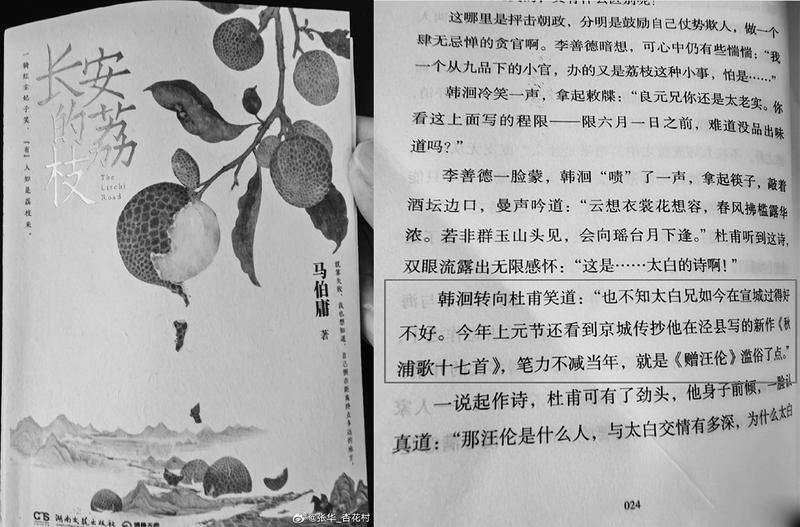 长安的荔枝
The
Litchi
Road
一骑红尘妃子笑，“有”人知是荔枝来。
马伯庸 著
就算失败，我也想知道，自己倒在距离终点多远的地方。
湖南文艺出版社
博集天卷
@张华_杏花村
这哪里是抨击朝政，分明是鼓励自己仗势欺人，做一个
肆无忌惮的贪官啊。李善德暗想，可心中仍有些惴惴：“我
一个从九品下的小官，办的又是荔枝这种小事，怕是……”
韩洄冷笑一声，拿起敕牒：“良元兄你还是太老实。你
看这上面写的程限——限六月一日之前，难道没品出味
道吗？”
李善德一脸蒙，韩洄“啧”了一声，拿起筷子，敲着
酒坛边口，曼声吟道：“云想衣裳花想容，春风拂槛露华
浓。若非群玉山头见，会向瑶台月下逢。”杜甫听到这诗，
双眼流露出无限感怀：“这是……太白的诗啊！”
韩洄转向杜甫笑道：“也不知太白兄如今在宣城过得好
不好。今年上元节还看到京城传抄他在泾县写的新作《秋
浦歌十七首》，笔力不减当年，就是《赠汪伦》滥俗了点。”
一说起作诗，杜甫可有了劲头，他身子前倾，一脸认
真道：“那汪伦是什么人，与太白交情有多深，为什么太白
024